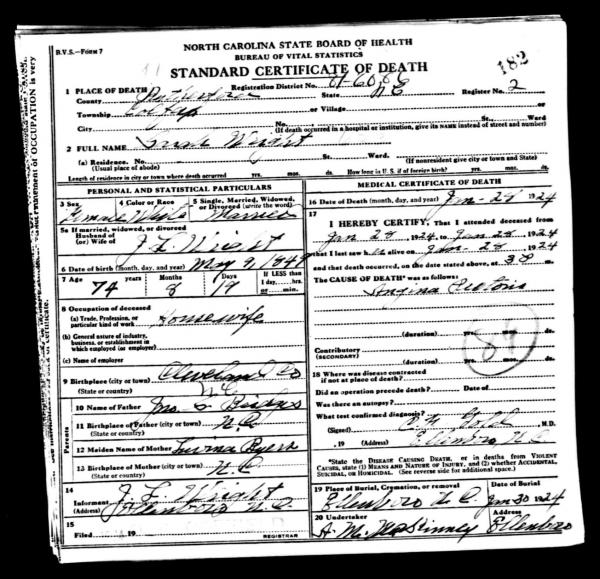 B.V.S.—Form 7
NORTH CAROLINA STATE BOARD OF HEALTH
BUREAU OF VITAL STATISTICS
182
STANDARD CERTIFICATE OF DEATH
1 PLACE OF DEATH Registration District No. Register No. 2
County Rutherford State N C
Township or Village
City No. St. Ward
(If death occurred in a hospital or institution, give its NAME instead of street and number)
2 FULL NAME Wright
(a) Residence. No. St. Ward.
(Usual place of abode) (If nonresident give city or town and State)
Length of residence in city or town where death occurred yrs. mos. ds. How long in U. S. if of foreign birth? yrs. mos. ds.
PERSONAL AND STATISTICAL PARTICULARS
3 Sex 4 Color or Race 5 Single, Married, Widowed, or Divorced (write the word)
Female White Married
5a If married, widowed, or divorced
Husband of
(or) Wife of J L Wright
6 Date of birth (month, day, and year) May 9, 1849
7 Age Years Months Days If LESS than 1 day, hrs. or min.
74 8 19
8 Occupation of deceased
(a) Trade, Profession, or particular kind of work Housewife
(b) General nature of industry, business, or establishment in which employed (or employer)
(c) Name of employer
9 Birthplace (city or town) Cleveland Co
(State or country) N.C.
Parents
10 Name of Father Jno.
11 Birthplace of Father (city or town) N.C.
(State or country)
12 Maiden Name of Mother Byers
13 Birthplace of Mother (city or town) N.C.
(State or country)
14
Informant J. L. Wright
(Address) Ellenboro N.C.
15
Filed 19
REGISTRAR
MEDICAL CERTIFICATE OF DEATH
16 Date of Death (month, day, and year) Jan-28 1924
17
I HEREBY CERTIFY, That I attended deceased
from Jan 28, 1924, to Jan-28, 1924
that I last saw h alive on Jan-28, 1924
and that death occurred, on the date stated above, at m.
The CAUSE OF DEATH* was as follows:
Angina Pectoris
(duration) yrs. mos. ds.
Contributory
(SECONDARY)
(duration) yrs. mos. ds.
18 Where was disease contracted
if not at place of death?
Did an operation precede death? Date of
Was there an autopsy?
What test confirmed diagnosis?
(Signed) M.D.
, 19 (Address) Ellenboro N.C.
*State the DISEASE CAUSING DEATH, or in deaths from VIOLENT CAUSES, state (1) MEANS AND NATURE OF INJURY, and (2) whether ACCIDENTAL, SUICIDAL, OR HOMICIDAL. (See reverse side for additional space.)
19 Place of Burial, Cremation, or removal Date of Burial
Ellenboro N.C. Jan 30 1924
20 Undertaker Address
A. M. McKinney Ellenboro